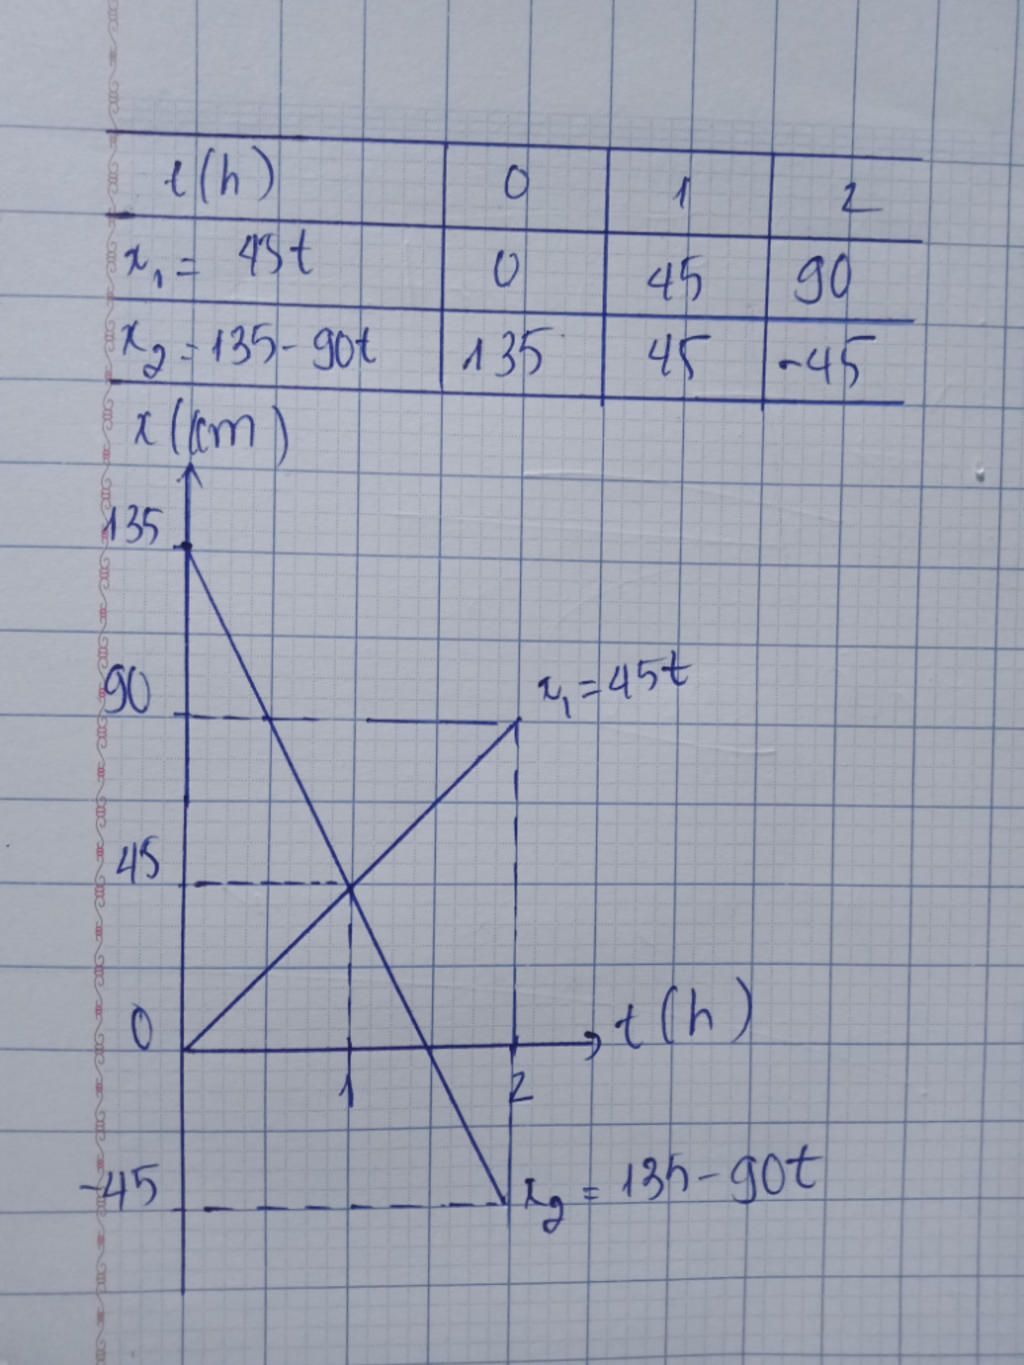 t(h) 0 1 2
x₁ = 45t 0 45 90
x₂ = 135 - 90t 135 45 -45
x(km)
135
90
x₁ = 45t
45
0
t(h)
1 2
-45
x₂ = 135 - 90t